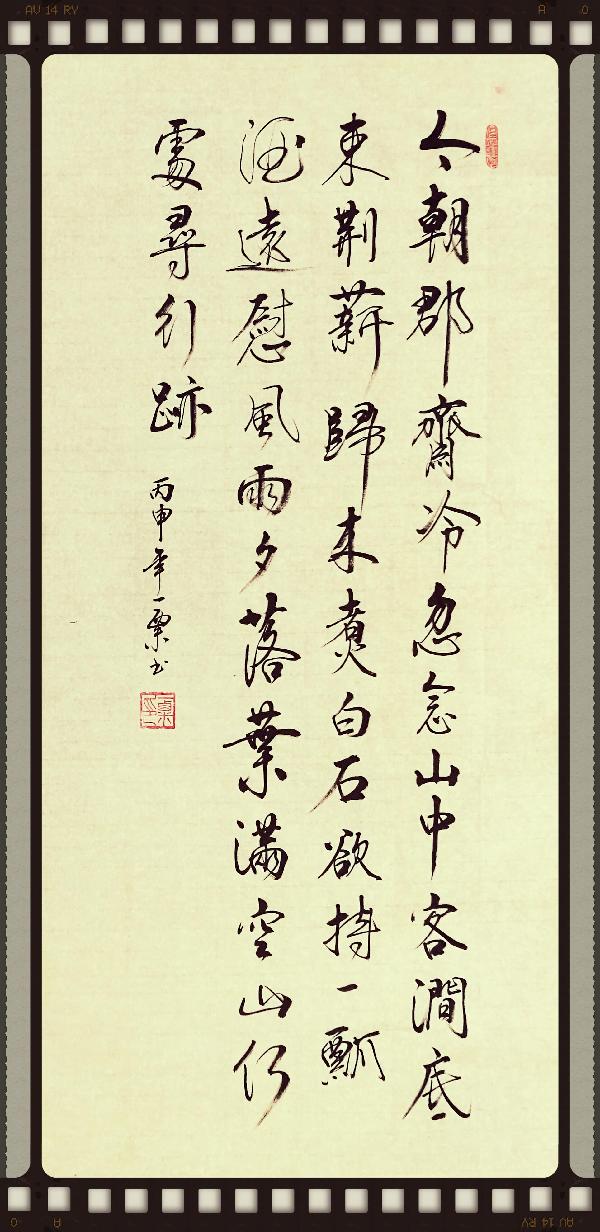 AV 14 RV A 0
今朝郡齋冷忽念山中客澗底
束荊薪歸来煮白石欲持一瓢
酒遠慰風雨夕落葉滿空山何
處尋行跡
丙申年一粟书
0 A AV 14 RV